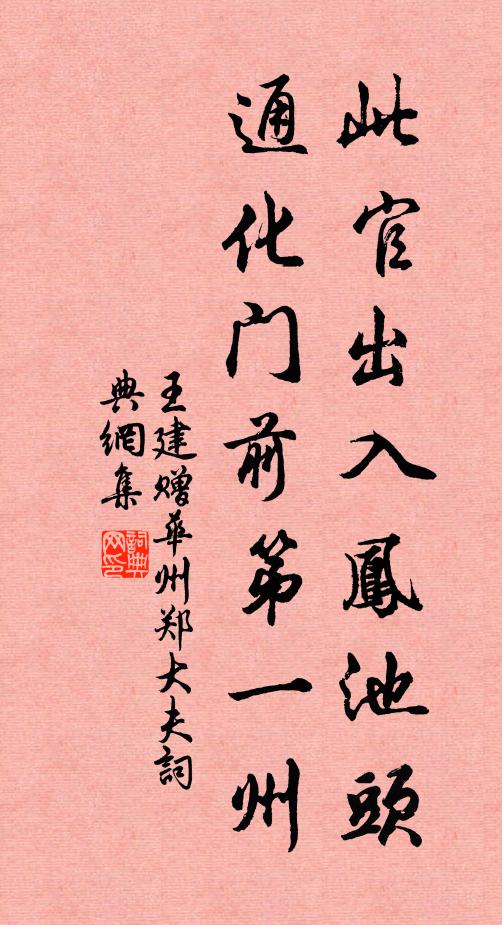 此官出入鳳池頭
通化门前第一州
王建赠華州郑大夫詞
典網集
詞典
网印